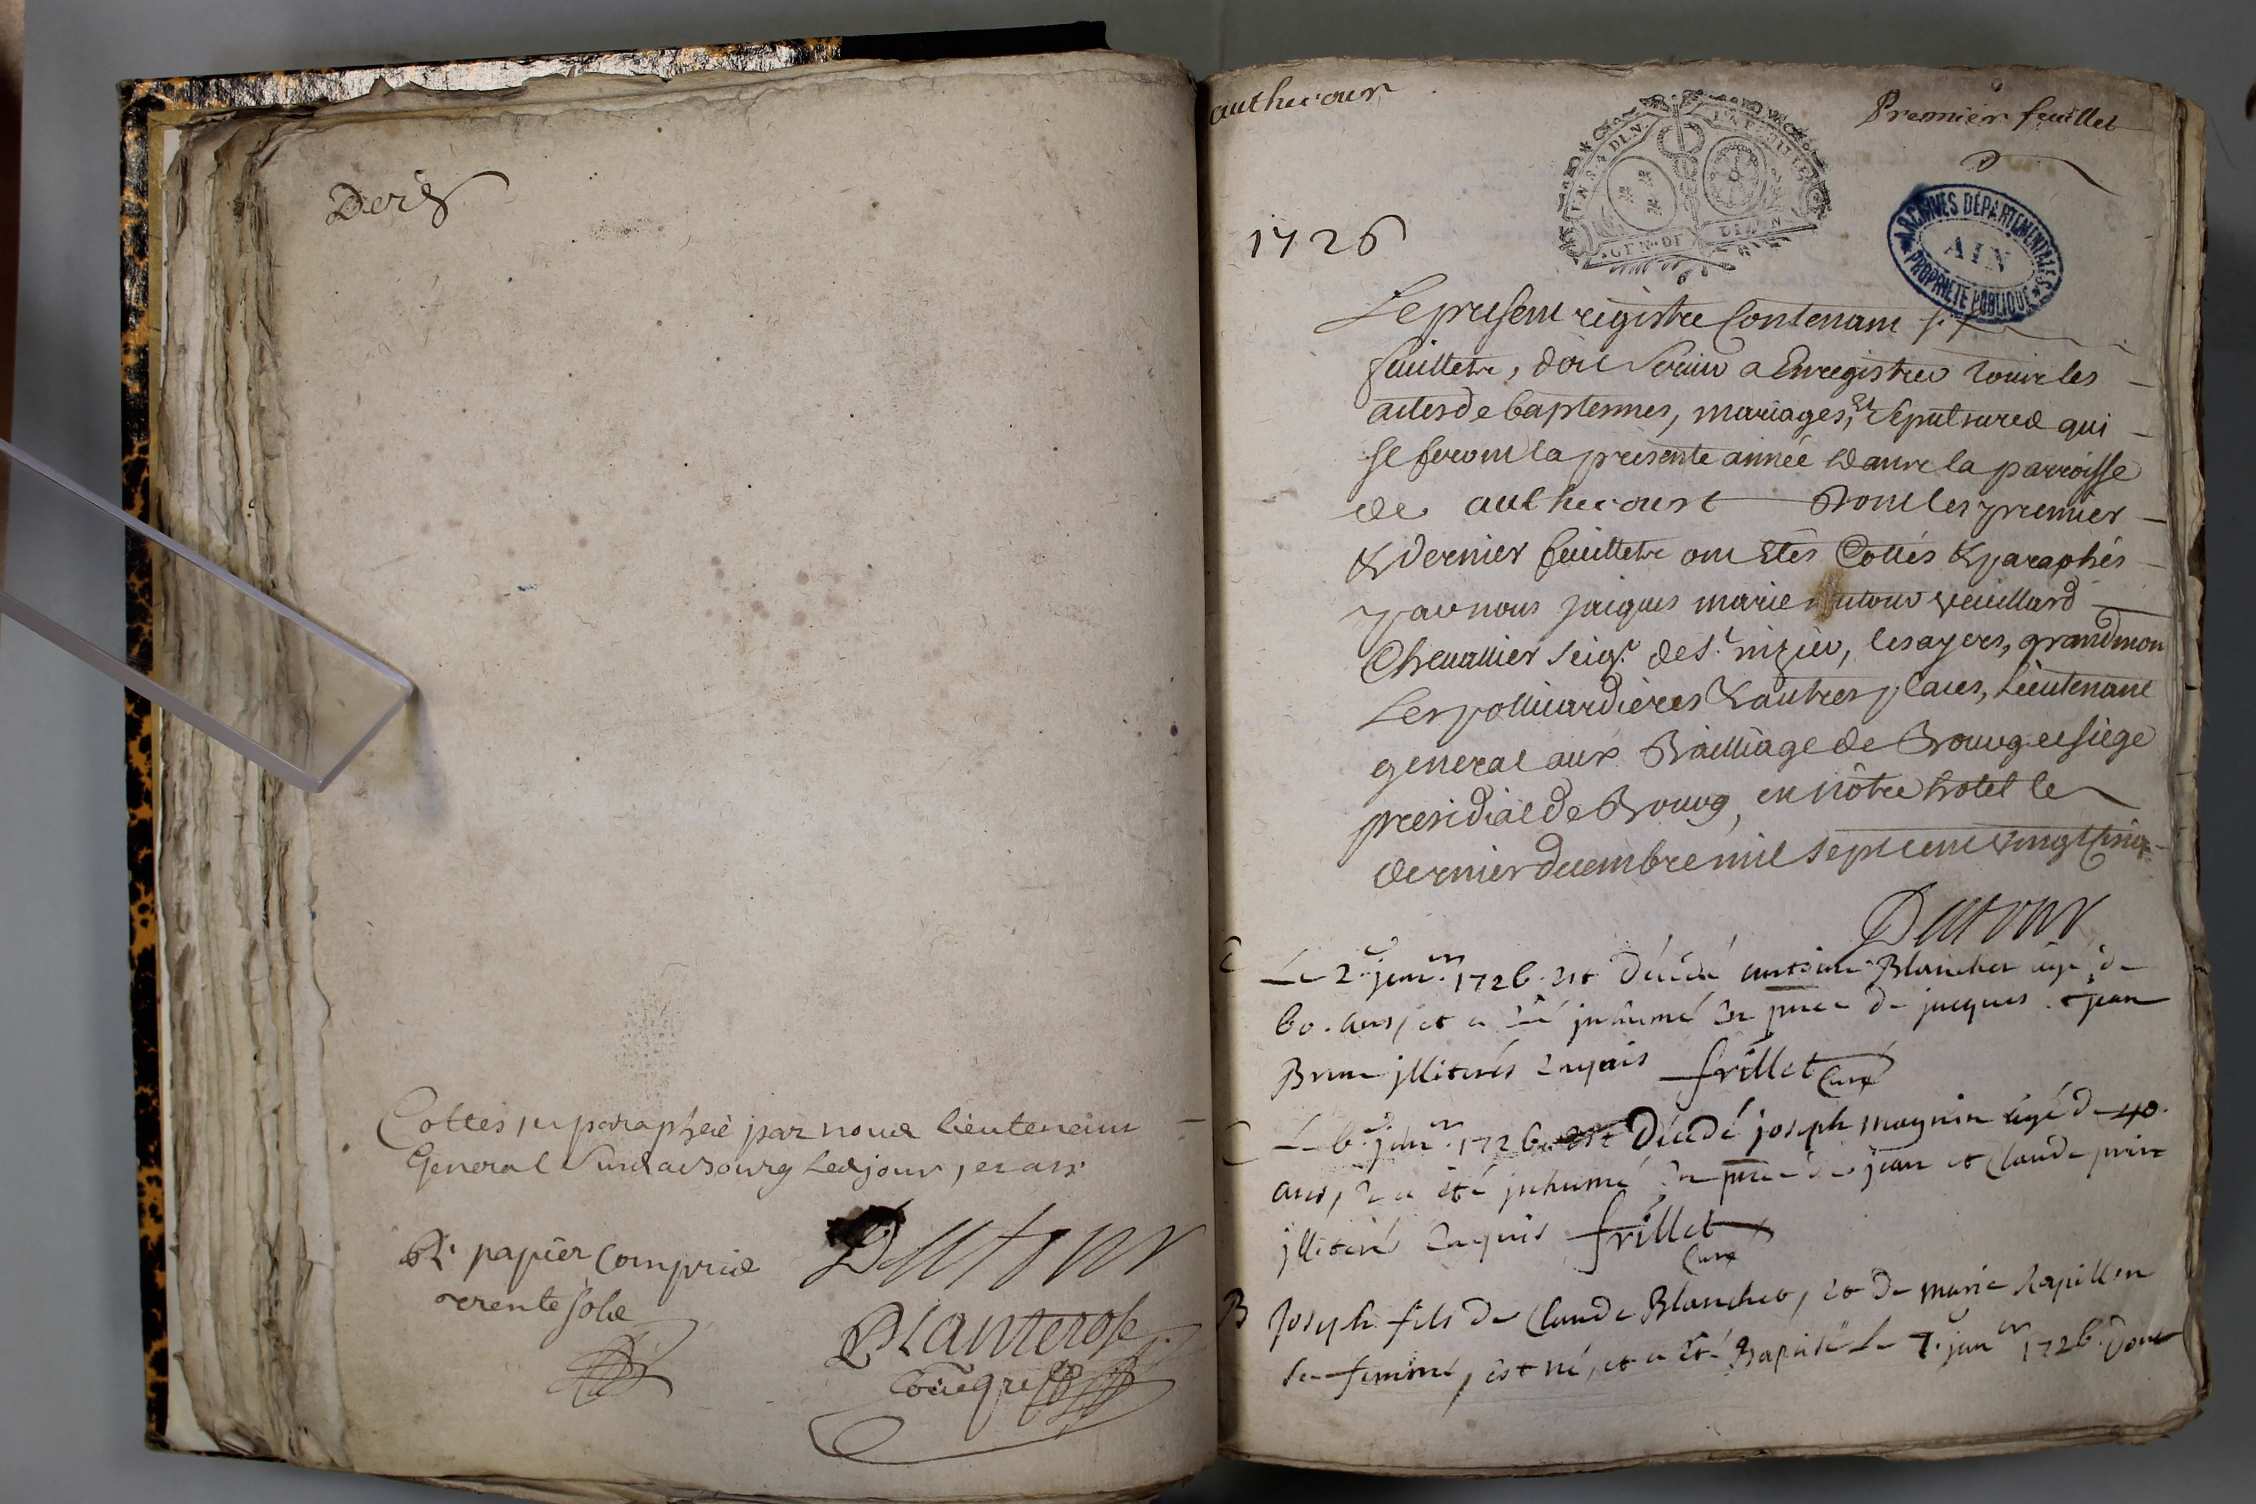 Der
Cottés et paraphé par nous lieutenant
General Susd a Bourg Led jour, et an
R. papier compris
trente sols
Dutour
Planterose
Com greff
authecour
Premier feuillet
GEN DE DIJON
ARCHIVES DEPARTEMENTALES
AIN
PROPRIETE PUBLIQUE
1726
Le present registre Contenant six
feuillets, doit servir a Enregistrer tous les
actes de baptesmes, mariages, et sepultures qui
se feront la presente année dans la parroisse
de authecourt Dont les premier
& dernier feuillets ont étés Cottés & paraphés
par nous jacques marie dutour vuillard
Chevallier seigr. de St. nizier, les ayes, grandmon
Les polliardieres & autres places, Lieutenant
general aux Bailliage de Bourg et siege
presidial de Bourg, en nôtre hotel le
dernier decembre mil sept cent vingt cinq
Dutour
Le 2e. janvr. 1726. est décédé antoine Blanchet agé de
60. ans, et a été inhumé en pnce de jacques et jean
Brun illiterés enquis frillet Curé
Le 6e. janvr. 1726. est décédé joseph magnin agé de 40.
ans, et a été inhumé en pnce de jean et Claude
illiterés enquis frillet
Curé
B Joseph fils de Claude Blanchet, et de marie
sa femme, est né, et a été Baptisé Le 7. janvr 1726. Dont